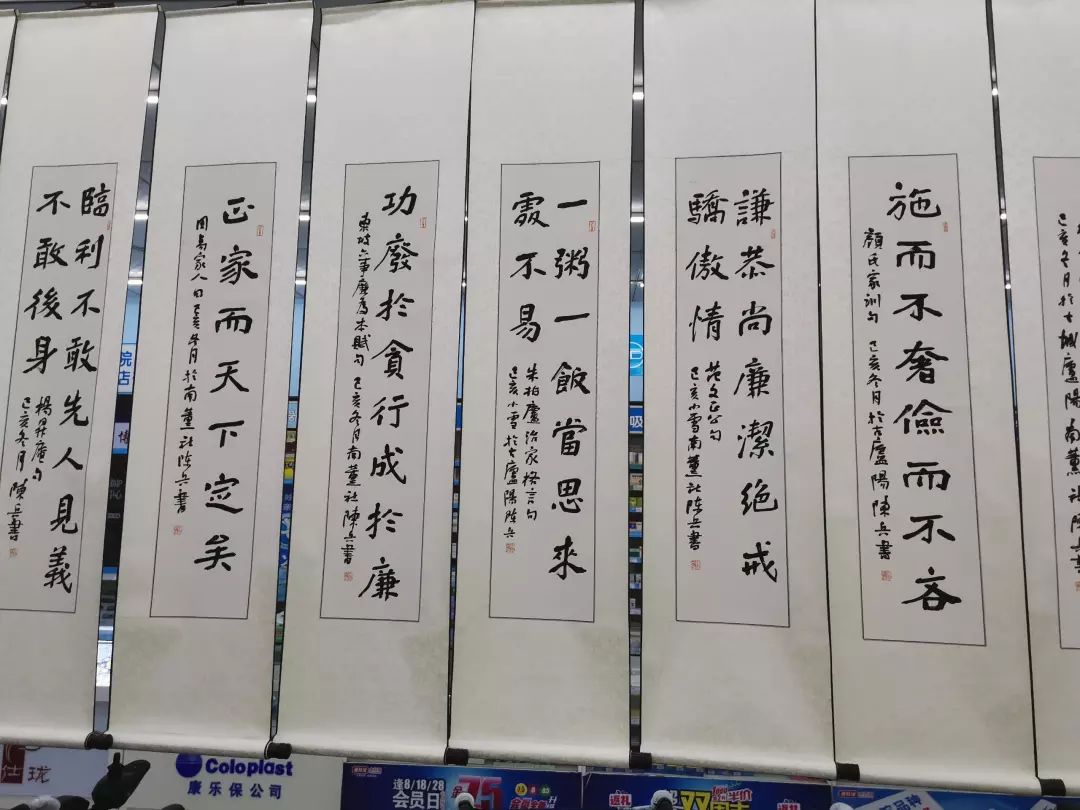 臨利不敢先人見義
不敢後身
楊昇庵句
己亥冬月陳兵書
正家而天下定矣
周易家人句己亥冬月於南薰社陈兵書
功廢於貪行成於廉
東坡六事廉為本賦句 己亥冬月南薰社陳兵書
一粥一飯當思來
處不易
朱柏廬治家格言句
己亥小雪於古廬陽陈兵
謙恭尚廉潔絕戒
驕傲情
范文正公句
己亥小雪南薰社陈兵書
施而不奢儉而不吝
顏氏家訓句 己亥冬月於古廬陽陳兵書
己亥冬月於古城廬陽南薰社陳兵書
院店
吸
仕
珑
Coloplast
康乐保公司
逢8/18/28
会员日
全
75
返礼
双
半价
返礼